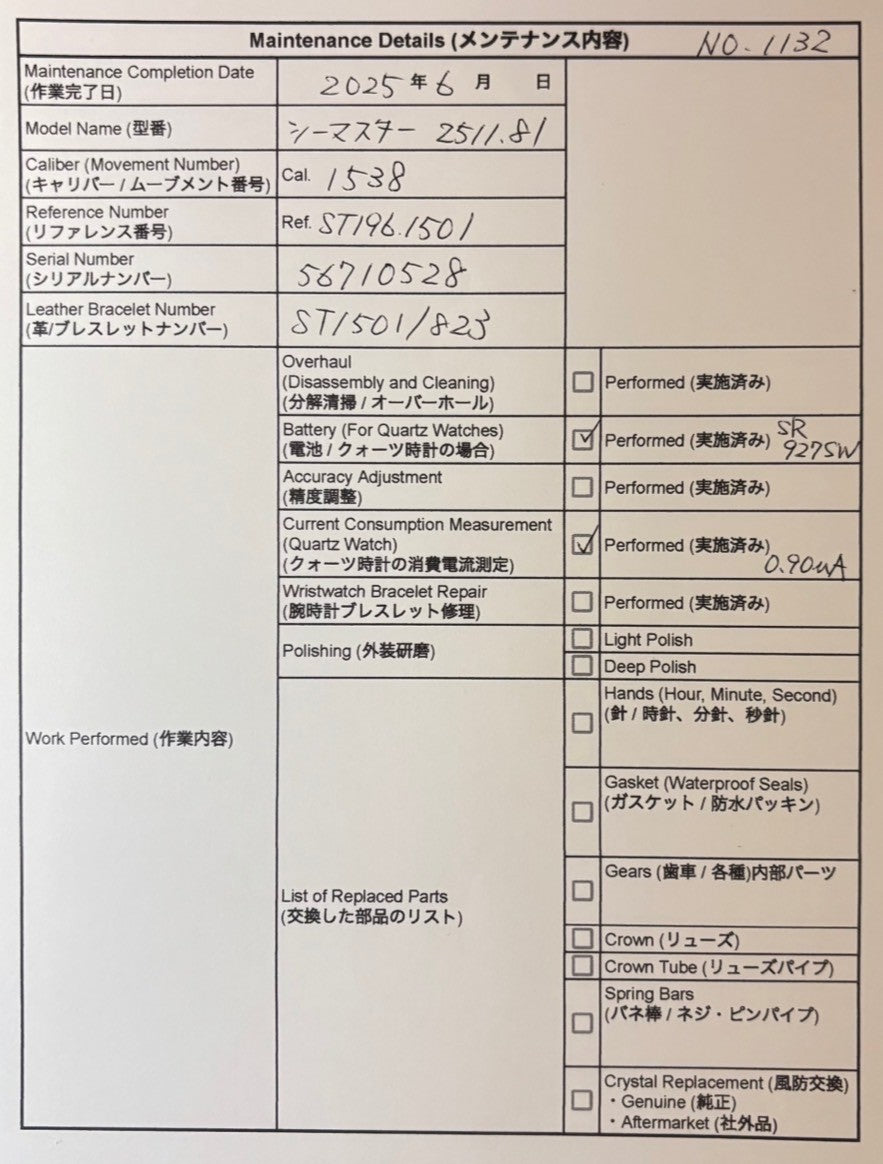 Maintenance Details (メンテナンス内容) NO. 1132
Maintenance Completion Date
(作業完了日)
2025 年 6 月 日
Model Name (型番)
シーマスター 2511.81
Caliber (Movement Number)
(キャリバー / ムーブメント番号)
Cal. 1538
Reference Number
(リファレンス番号)
Ref. ST196.1501
Serial Number
(シリアルナンバー)
56710528
Leather Bracelet Number
(革/ブレスレットナンバー)
ST1501/823
Work Performed (作業内容)
Overhaul
(Disassembly and Cleaning)
(分解清掃 / オーバーホール)
Performed (実施済み)
Battery (For Quartz Watches)
(電池 / クォーツ時計の場合)
Performed (実施済み) SR
927SW
Accuracy Adjustment
(精度調整)
Performed (実施済み)
Current Consumption Measurement
(Quartz Watch)
(クォーツ時計の消費電流測定)
Performed (実施済み)
0.90uA
Wristwatch Bracelet Repair
(腕時計ブレスレット修理)
Performed (実施済み)
Polishing (外装研磨)
Light Polish
Deep Polish
List of Replaced Parts
(交換した部品のリスト)
Hands (Hour, Minute, Second)
(針 / 時針、分針、秒針)
Gasket (Waterproof Seals)
(ガスケット / 防水パッキン)
Gears (歯車 / 各種)内部パーツ
Crown (リューズ)
Crown Tube (リューズパイプ)
Spring Bars
(バネ棒 / ネジ・ピンパイプ)
Crystal Replacement (風防交換)
・Genuine (純正)
・Aftermarket (社外品)